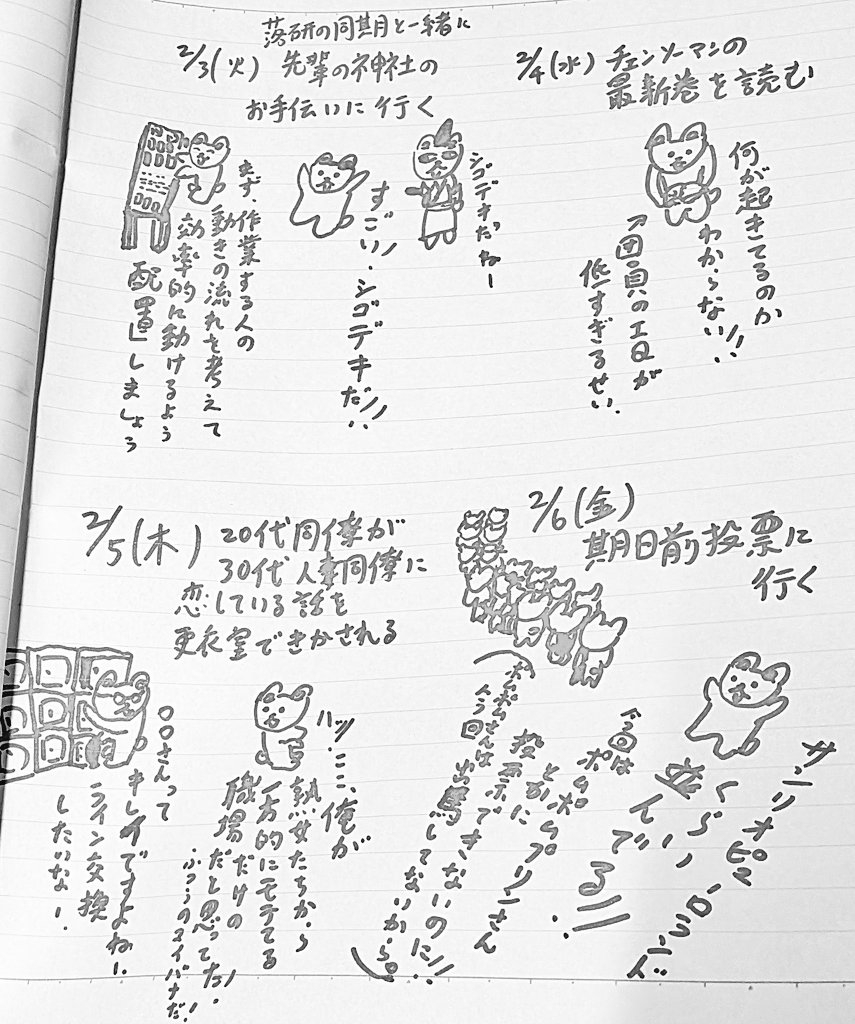 落研の同期と一緒に
2/3(火) 先輩の神社の
お手伝いに行く
シゴデキだねー
すごい!シゴデキだ!!
まず、作業する人の
動きの流れを考えて
効率的に動けるよう
配置しましょう
2/4(水) チェンソーマンの
最新巻を読む
何が起きてるのか
わからない!!
↑団員のIQが
低すぎるせい
2/5(木) 20代同僚が
30代人妻同僚に
恋している話を
更衣室できかされる
〇〇さんって
キレイですよねー
ライン交換
したいなー
ハッ…ここ、俺が
熟女たちから
一方的にモテてる
だけの
職場だと思ってた!
ふつうのヌイバナだ!
2/6(金)
期日前投票に
行く
サンリオピューロランド
くらい
並んでる!!
今回は
ポムポムプリンさん
とかに
投票できないのに!!
(ポムポムさんは
今回出馬してないから。)